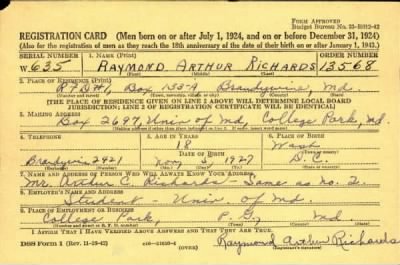 FORM APPROVED
Budget Bureau No. 33-R012-42
REGISTRATION CARD (Men born on or after July 1, 1924, and on or before December 31, 1924)
(Also for the registration of men as they reach the 18th anniversary of the date of their birth on or after January 1, 1943.)
SERIAL NUMBER 1. NAME (Print) ORDER NUMBER
W. 635 RAYMOND ARTHUR RICHARDS 13568
(First) (Middle) (Last)
2. PLACE OF RESIDENCE (Print)
RFD#1, Box 155-A Brandywine, Md.
(Number and street) (Town, township, village, or city) (County) (State)
[THE PLACE OF RESIDENCE GIVEN ON LINE 2 ABOVE WILL DETERMINE LOCAL BOARD
JURISDICTION; LINE 2 OF REGISTRATION CERTIFICATE WILL BE IDENTICAL]
3. MAILING ADDRESS
Box 2687, Univ of Md, College Park, Md.
[Mailing address if other than place indicated on line 2. If same insert word same]
4. TELEPHONE 5. AGE IN YEARS 6. PLACE OF BIRTH
18 Wash
DATE OF BIRTH
Brandywine 2921 Nov 3, 1927 D. C.
(Exchange) (Number) (Mo.) (Day) (Yr.) (State or country)
7. NAME AND ADDRESS OF PERSON WHO WILL ALWAYS KNOW YOUR ADDRESS
Mr. Arthur C. Richards - Same as no. 2
8. EMPLOYER'S NAME AND ADDRESS
Student - Univ. of Md.
9. PLACE OF EMPLOYMENT OR BUSINESS
College Park, P. G., Md.
(Number and street or R. F. D. number) (Town) (County) (State)
I AFFIRM THAT I HAVE VERIFIED ABOVE ANSWERS AND THAT THEY ARE TRUE.
DSS Form 1 (Rev. 11-16-42) (OVER) Raymond Arthur Richards
(Registrant's signature)